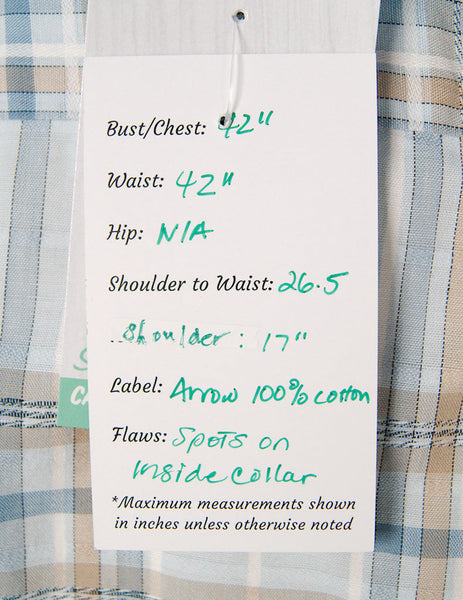 Bust/Chest: 42"
Waist: 42"
Hip: N/A
Shoulder to Waist: 26.5
Shoulder: 17"
Label: Arrow 100% cotton
Flaws: Spots on
inside collar
*Maximum measurements shown
in inches unless otherwise noted